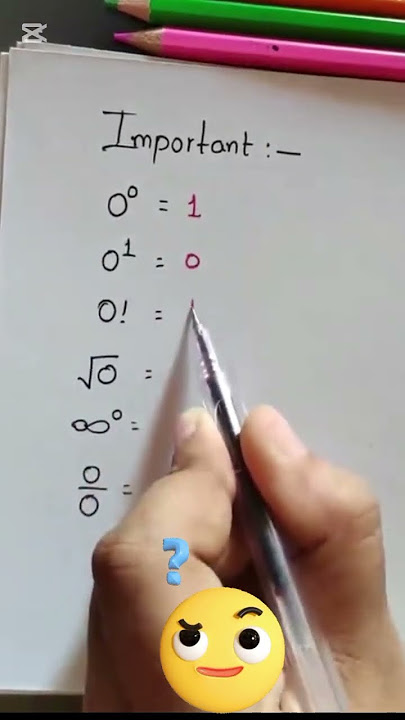 Important :-
0⁰ = 1
0¹ = 0
0! =
√0 =
∞⁰ =
0/0 =
?